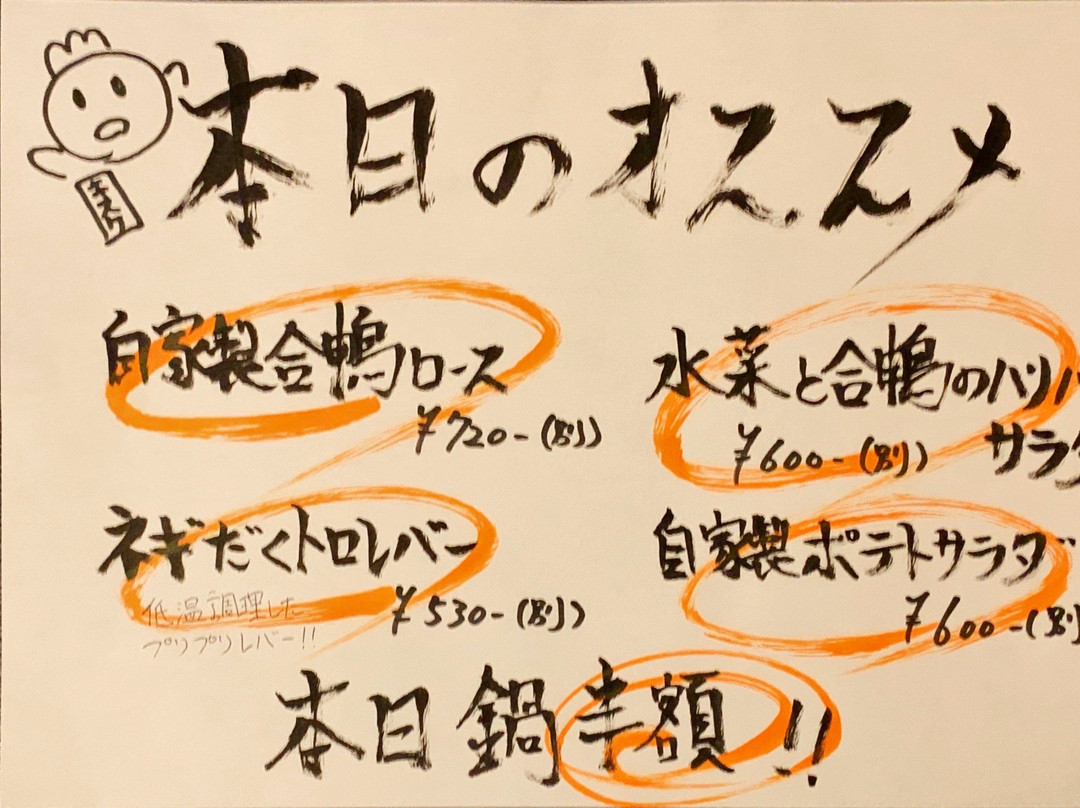 本日のオススメ
自家製合鴨ロース
¥720-(別)
水菜と合鴨のハリハ
サラダ
¥600-(別)
ネギだくトロレバー
低温調理した
プリプリレバー!!
¥530-(別)
自家製ポテトサラダ
¥600-(別)
本日鍋半額!!